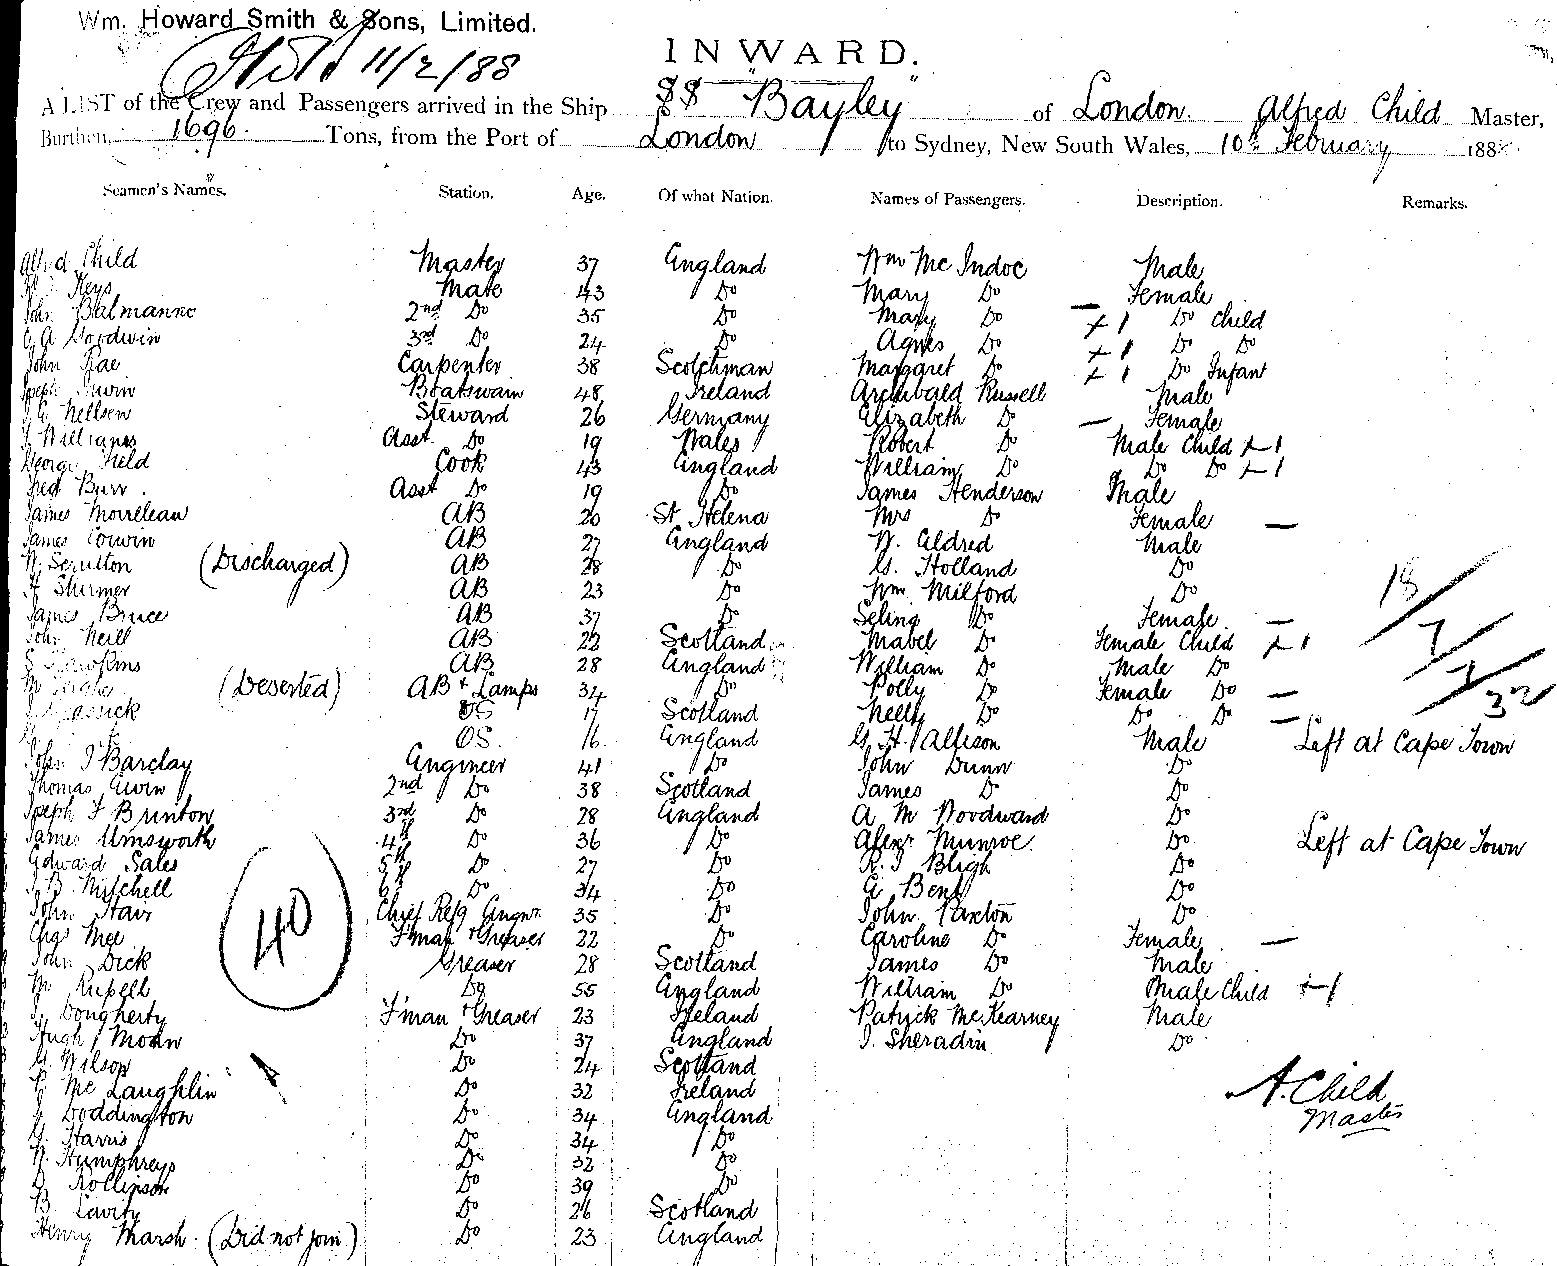 Wm. Howard Smith & Sons, Limited.
11/2/88
INWARD.
A LIST of the Crew and Passengers arrived in the Ship SS "Bayley" of London Alfred Child Master,
Burthen, 1696 Tons, from the Port of London to Sydney, New South Wales, 10th February 188
Seamen's Names. Station. Age. Of what Nation. Names of Passengers. Description. Remarks.
Alfred Child Master 37 England Wm Mc Indoe Male
Keys Mate 43 Do Mary Do Female —
John Balmanno 2nd Do 35 Do Mary Do + 1 Do Child
A Goodwin 3rd Do 24 Do Agnes Do + 1 Do Do
John Rae Carpenter 38 Scotchman Margaret Do + 1 Do Infant
Joseph Irwin Boatswain 48 Ireland Archibald Russell Male
Nellsen Steward 26 Germany Elizabeth Do — Female
Williams Asst Do 19 Wales Robert Do Male Child + 1
George Field Cook 43 England William Do Do Do + 1
Fred Burr Asst Do 19 Do James Henderson Male
James Morrelean AB 20 St Helena Mrs Do Female —
James Corwin AB 27 England W. Aldred Male
W Scrutton (Discharged) AB 28 Do G. Holland Do
H Shirmer AB 23 Do Wm Milford Do
James Bruce AB 37 Do Selina Do Female — 18/
John Neill AB 22 Scotland Mabel Do Female Child + 1 7/
Hawkins AB 28 England William Do Male Do 7/
(Deserted) AB + Lamps 34 Do Polly Do Female Do — 32
OS 17 Scotland Nelly Do Do Do —
OS. 16 England G. H. Allison Male Left at Cape Town
John J Barclay Engineer 41 Do John Dunn Do
Thomas Ewin 2nd Do 38 Scotland James Do Do
Joseph F Brunton 3rd Do 28 England A M Woodward Do
James Umsworth 4th Do 36 Do Alexr Munroe. Do Left at Cape Town
Edward Sales 5th Do 27 Do R. J Bligh Do
B Mitchell 6th Do 34 Do Bent Do
John Starr Chief Refg Engnr 35 Do John Paxton Do
Chas Mee F'man + Greaser 22 Do Caroline Do Female —
John Dick Greaser 28 Scotland James Do Male
M Rupell Do 55 England William Do Male Child + 1
Dougherty F'man + Greaser 23 Ireland Patrick Mc Kearney Male
Hugh Moan Do 37 England J. Sheradin Do
40
G. Wilson Do 24 Scotland
Mc Laughlin Do 32 Ireland
Doddington Do 34 England
Harris Do 34 Do
W. Humphreys Do 32 Do
Rollinson Do 39 Do
B Lavity Do 26 Scotland
Henry Marsh. (Did not join) Do 23 England
A. Child
Master